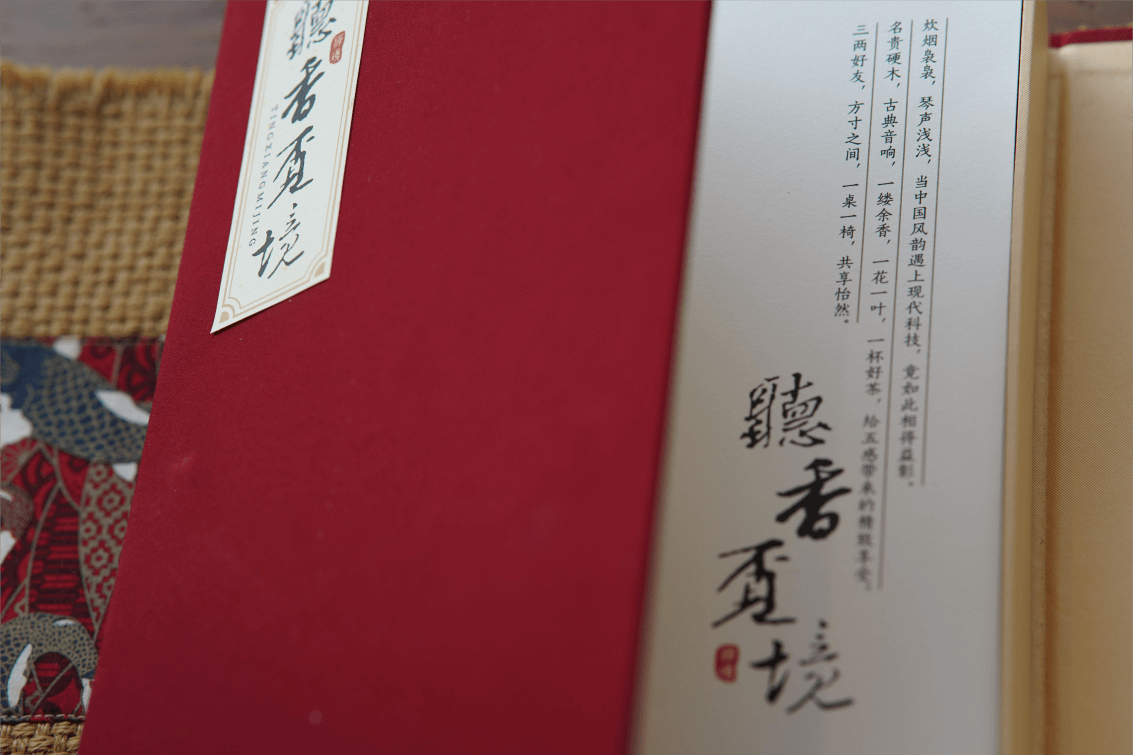 聽香覔境
TINGXIANGMIJING
炊烟袅袅，琴声浅浅，当中国风韵遇上现代科技，竟如此相得益彰。
名贵硬木，古典音响，一缕余香，一花一叶，一杯好茶，给五感带来的精致享受。
三两好友，方寸之间，一桌一椅，共享怡然。
聽香覔境